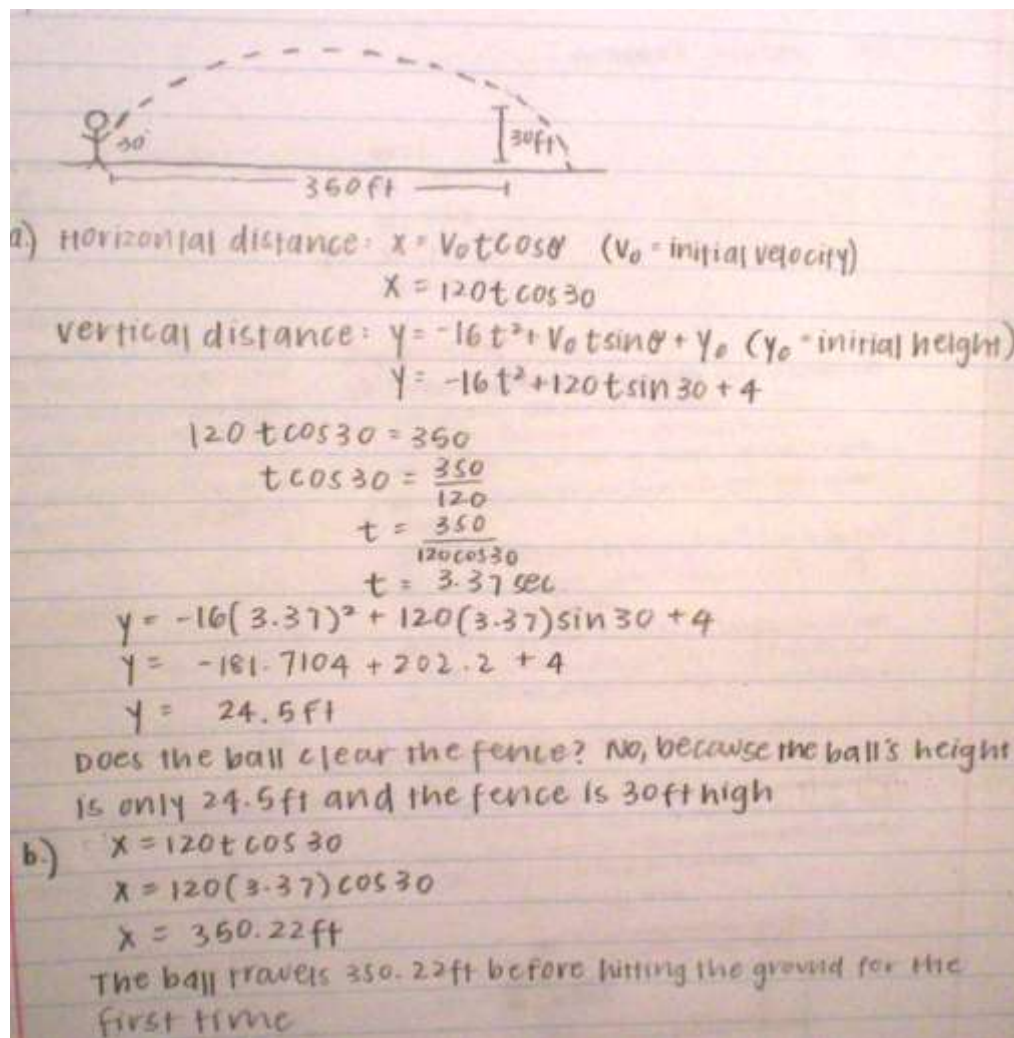 30°
30ft
350ft
a.) Horizontal distance: x = V₀tcosθ (V₀ = initial velocity)
x = 120t cos30
vertical distance: y = -16t² + V₀tsinθ + y₀ (y₀ = initial height)
y = -16t² + 120tsin 30 + 4
120 tcos30 = 350
t cos 30 = 350/120
t = 350/120cos30
t = 3.37 sec
y = -16(3.37)² + 120(3.37)sin 30 + 4
y = -181.7104 + 202.2 + 4
y = 24.5ft
Does the ball clear the fence? No, because the ball's height
is only 24.5ft and the fence is 30ft high
b.) x = 120t cos 30
x = 120(3.37)cos30
x = 350.22ft
The ball travels 350.22ft before hitting the ground for the
first time